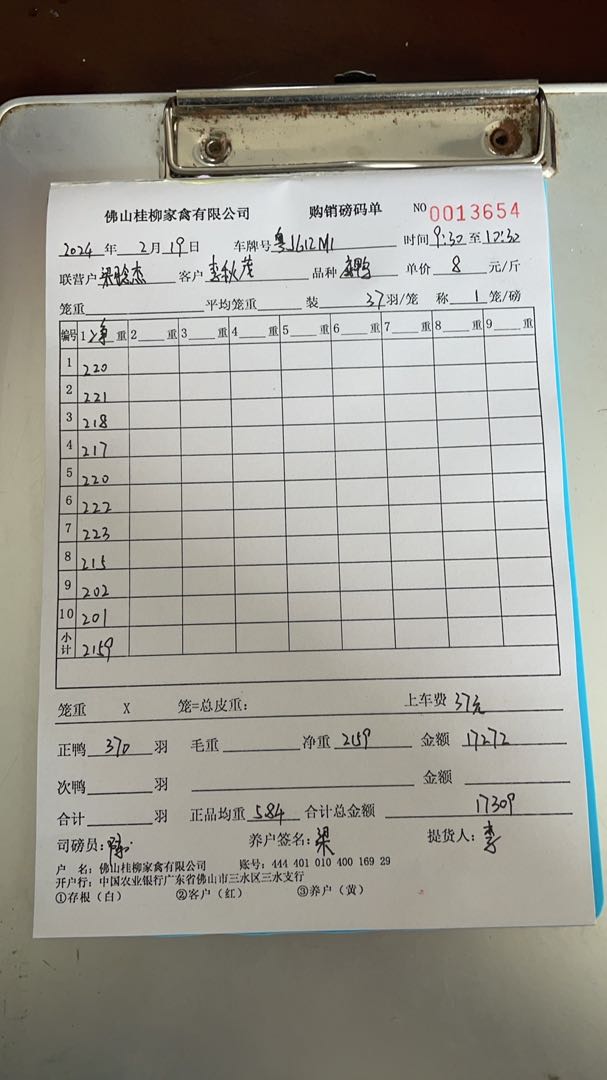 佛山桂柳家禽有限公司 购销磅码单 NO 0013654
2024 年 2 月 19 日 车牌号 粤J612M1 时间 9:30 至 10:30
联营户 梁晗杰 客户 李秋茂 品种 单价 8 元/斤
笼重 平均笼重 装 37 羽/笼 称 1 笼/磅
编号 1 净 重 2 重 3 重 4 重 5 重 6 重 7 重 8 重 9 重
1 220
2 221
3 218
4 217
5 220
6 222
7 223
8 215
9 202
10 201
小计 2159
笼重 X 笼=总皮重: 上车费 37元
正鸭 370 羽 毛重 净重 2159 金额 17272
次鸭 羽 金额
合计 羽 正品均重 5.84 合计总金额 17309
司磅员: 养户签名: 梁 提货人: 李
户 名: 佛山桂柳家禽有限公司 账号: 444 401 010 400 169 29
开户行: 中国农业银行广东省佛山市三水区三水支行
①存根(白) ②客户(红) ③养户(黄)